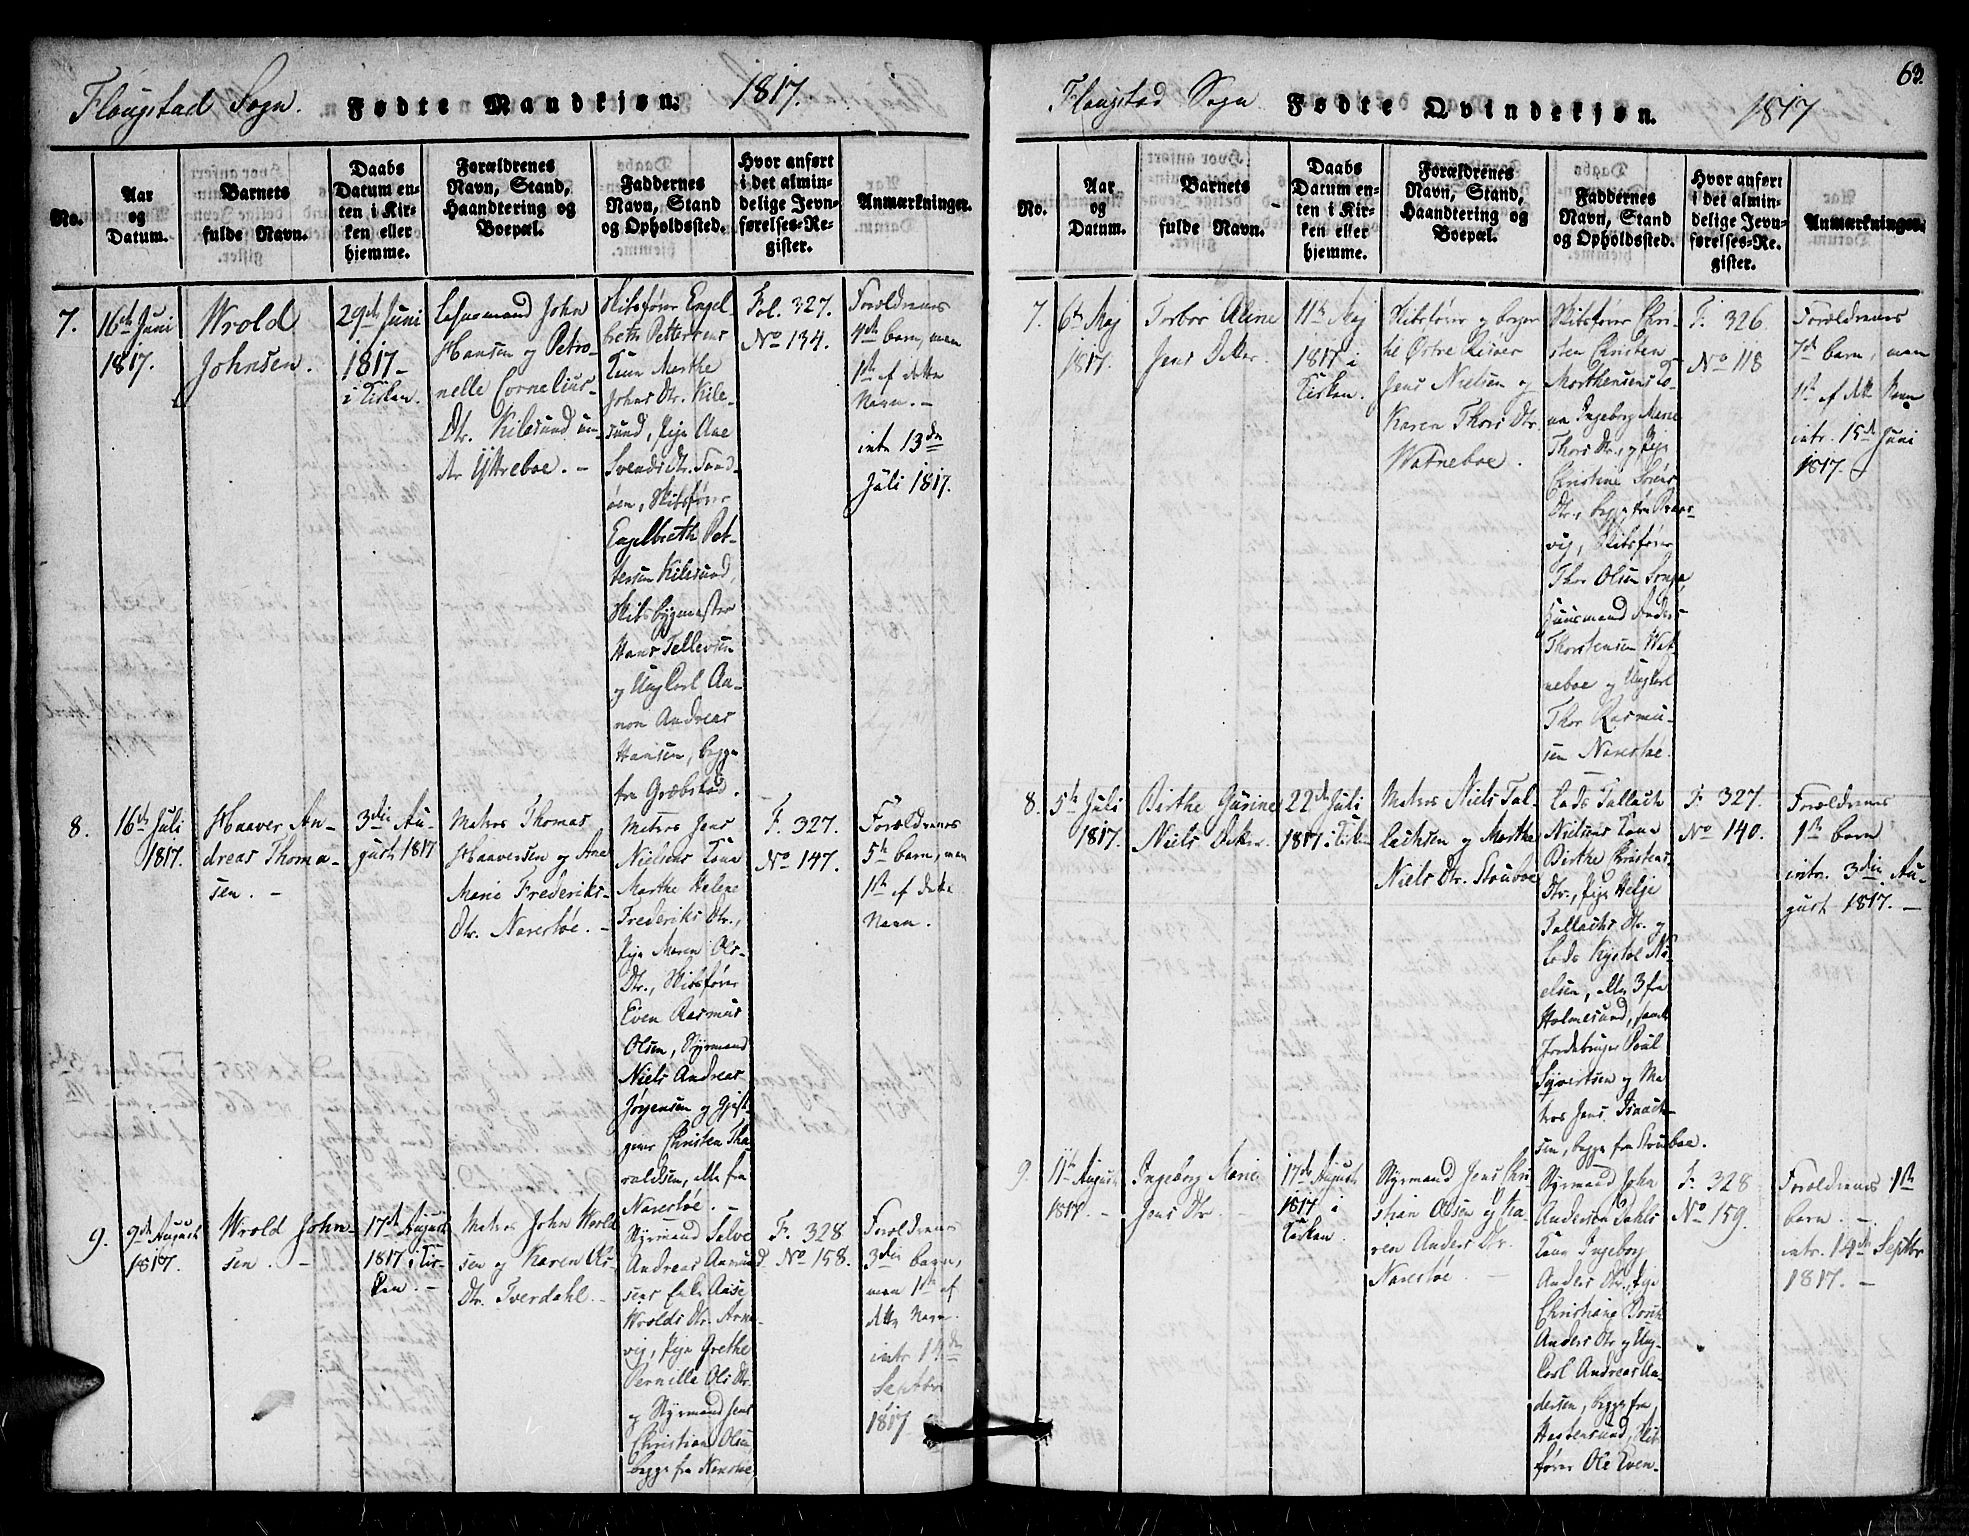 Flougstad Sogn. Fødte Mandkjøn. 1817.
No.
Aar
og
Datum.
Barnets
fulde Navn.
Daabs
Datum en-
ten i Kir-
ken eller
hjemme.
Forældrenes
Navn, Stand,
Haandtering og
Boepæl.
Faddernes
Navn, Stand
og Opholdssted.
Hvor anført
i det almin-
delige Jevn-
førelses-Re-
gister.
Anmærkninger.
7.
16de Juni
1817.
Wrold
Johnsen.
29de Juni
1817 -
i Kirken.
John
Hansen og Petro-
nelle Cornelius-
Dtr. Kilesund un-
der Yttreboe. -
Skibsfører Engel-
breth Pettersens
Kone Marthe
Johns Dtr. Kile-
sund, Pige Ane
Svends Dtr. Sand-
øen, Skibsfører
Engelbreth Pet-
tersen Kilesund,
Skibsbygmester
Hans Tellevsen
og Ungkarl An-
non Andreas
Hansen, begge
fra Græbstad.
Fol. 327.
No 134.
Forældrenes
4de barn, men
1ste af dette
Navn. -
intr. 13de
Juli 1817.
8.
16de Juli
1817.
Haaver An-
dreas Thoma-
sen. -
3die Au-
gust 1817
Matros Thomas
Haaversen og Ane
Marie Frederiks-
Dtr. Narestøe. -
Matros Jens
Nielsens Kone
Marthe Helene
Frederiks Dtr.,
Pige Maren Ols-
Dtr., Skibsfører
Even Rasmus
Olsen, Styrmand
Niels Andreas
Jørgensen og Gjest-
giver Christen Tha-
raldsen, alle fra
Narestøe. -
F. 327.
No 147.
Forældrenes
5te barn, men
1ste af dette
Navn.
9.
9de August
1817.
Wrold John-
sen. -
17de August
1817 i Kir-
ken. -
Matros John Wrold-
sen og Karen Ols-
Dtr. Tverdahl. -
Styrmand Salve
Andreas Aamund-
sens Enke Aase
Wrolds Dtr. Arne-
vig, Pige Grethe
Pernille Ols Dtr.
og Styrmand Jens
Christian Olsen,
begge fra Narestøe
F. 328
No 158.
Forældrenes
3die barn,
men 1ste af
dette Navn.
intr. 14de
Septbr
1817
63.
Flougstad Sogn Fødte Qvindekjøn. 1817
No.
Aar
og
Datum.
Barnets
fulde Navn.
Daabs
Datum en-
ten i Kir-
ken eller
hjemme.
Forældrenes
Navn, Stand,
Haandtering og
Boepæl.
Faddernes
Navn, Stand
og Opholdssted.
Hvor anført
i det almin-
delige Jevn-
førelses-Re-
gister.
Anmærkninger.
7.
6te Maj
1817.
Torbor Aline
Jens Dtr.
11te Maj
1817 i
Kirken.
Skibsfører og borger
til Østre Riisøer
Jens Nielsen og
Karen Thors Dtr.
Watneboe.
Skibsfører Chri-
sten Christen
Morthensens Ko-
ne Ingeborg Marie
Thors Dtr., og Pige
Christine Sørens
Dtr., begge fra
vig, Skibsfører
Thor Olsen Songe
Huusmand Anders
Thorstensen Wat-
neboe og Ungkarl
Thor Rasmu-
sen Narestøe.
F. 326.
No 118
Forældrenes
7de barn, men
1ste af dette Navn
intr. 15de Juni
1817.
8.
5te Juli
1817.
Birthe Gurine
Niels Dtr.
22de Juli
1817 i Kirken
Matros Niels Tal-
lachsen og Marthe
Niels Dtr. Stouboe
Lods Tallach
Nielsens Kone
Birthe Christens
Dtr., Pige Helje
Tallachs Dtr. og
Lods Nystøl Ni-
elsen, alle 3 fra
Holmesund, samt
Jordebruger Poul
Syvertsen og Ma-
tros Jens Isaach-
sen, begge fra Stouboe.
F. 327.
No 140.
Forældrenes
1ste barn
intr. 3die Au-
gust 1817. -
9.
11te August
1817. -
Ingeborg Marie
Jens Dtr. -
17de August
1817 i
Kirken.
Styrmand Jens Chri-
stian Olsen og Ka-
ren Anders Dtr.
Narestøe. -
Styrmand John
Andersen Dahls
Kone Ingeborg
Anders Dtr., Pige
Christiane
Anders Dtr. og Ung-
karl Andreas An-
dersen, begge fra
Hestensund, Skibs-
fører Ole Even-
F. 328
No 159.
Forældrenes 1ste
barn. -
intr. 14de Septbr
1817. -